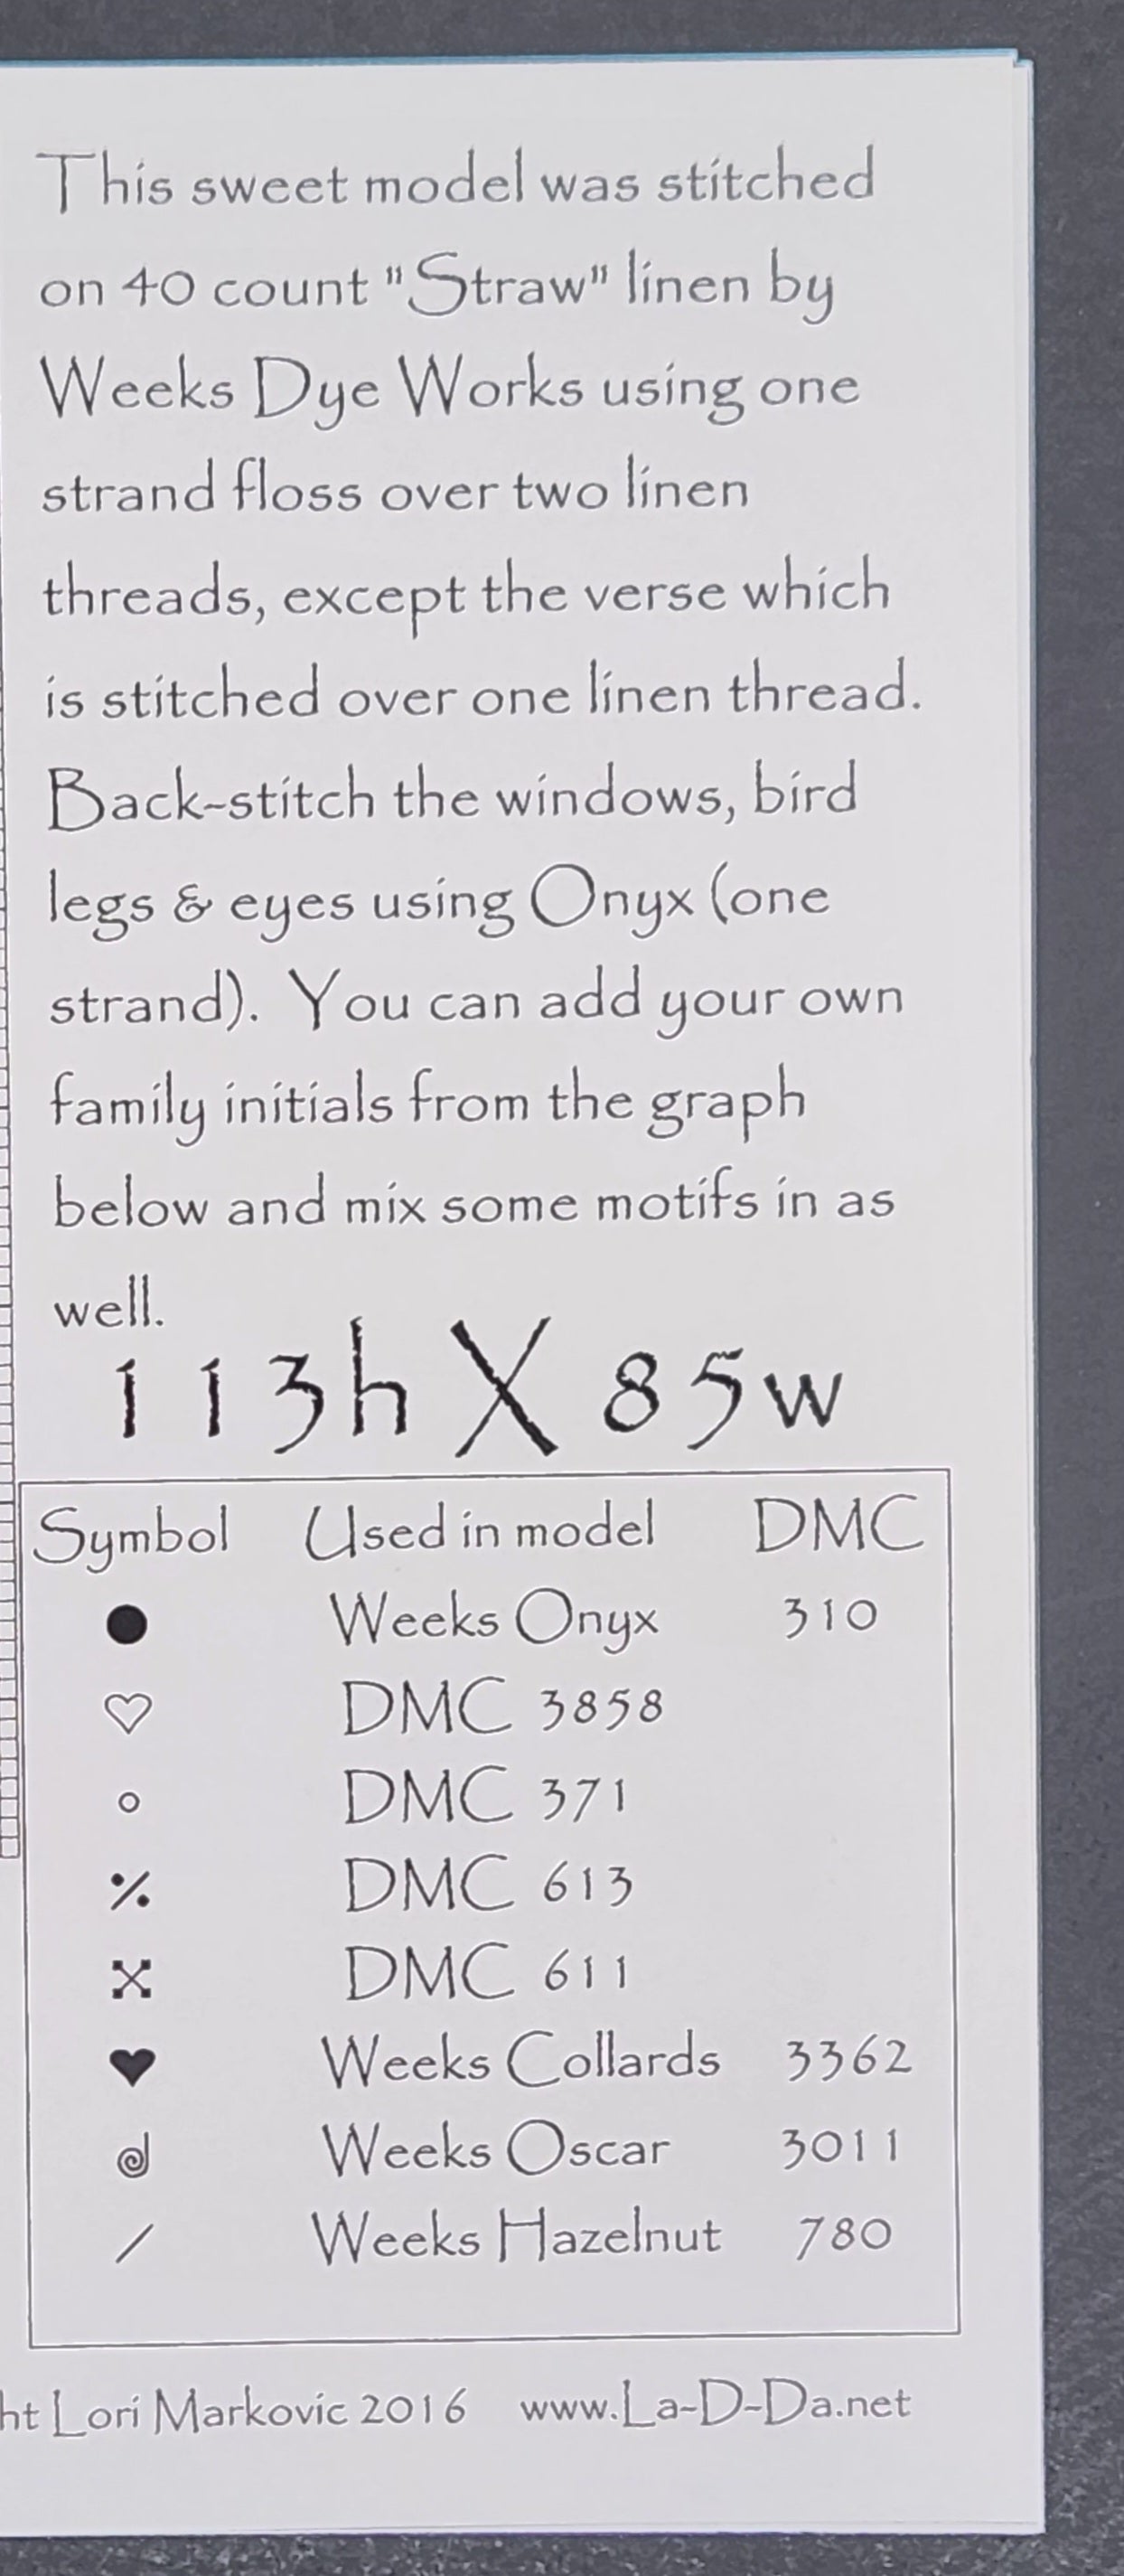 This sweet model was stitched
on 40 count "Straw" linen by
Weeks Dye Works using one
strand floss over two linen
threads, except the verse which
is stitched over one linen thread.
Back-stitch the windows, bird
legs & eyes using Onyx (one
strand). You can add your own
family initials from the graph
below and mix some motifs in as
well.
113h X 85w
Symbol Used in model DMC
● Weeks Onyx 310
♡ DMC 3858
○ DMC 371
⁒ DMC 613
DMC 611
♥ Weeks Collards 3362
Weeks Oscar 3011
/ Weeks Hazelnut 780
ht Lori Markovic 2016 www.La-D-Da.net